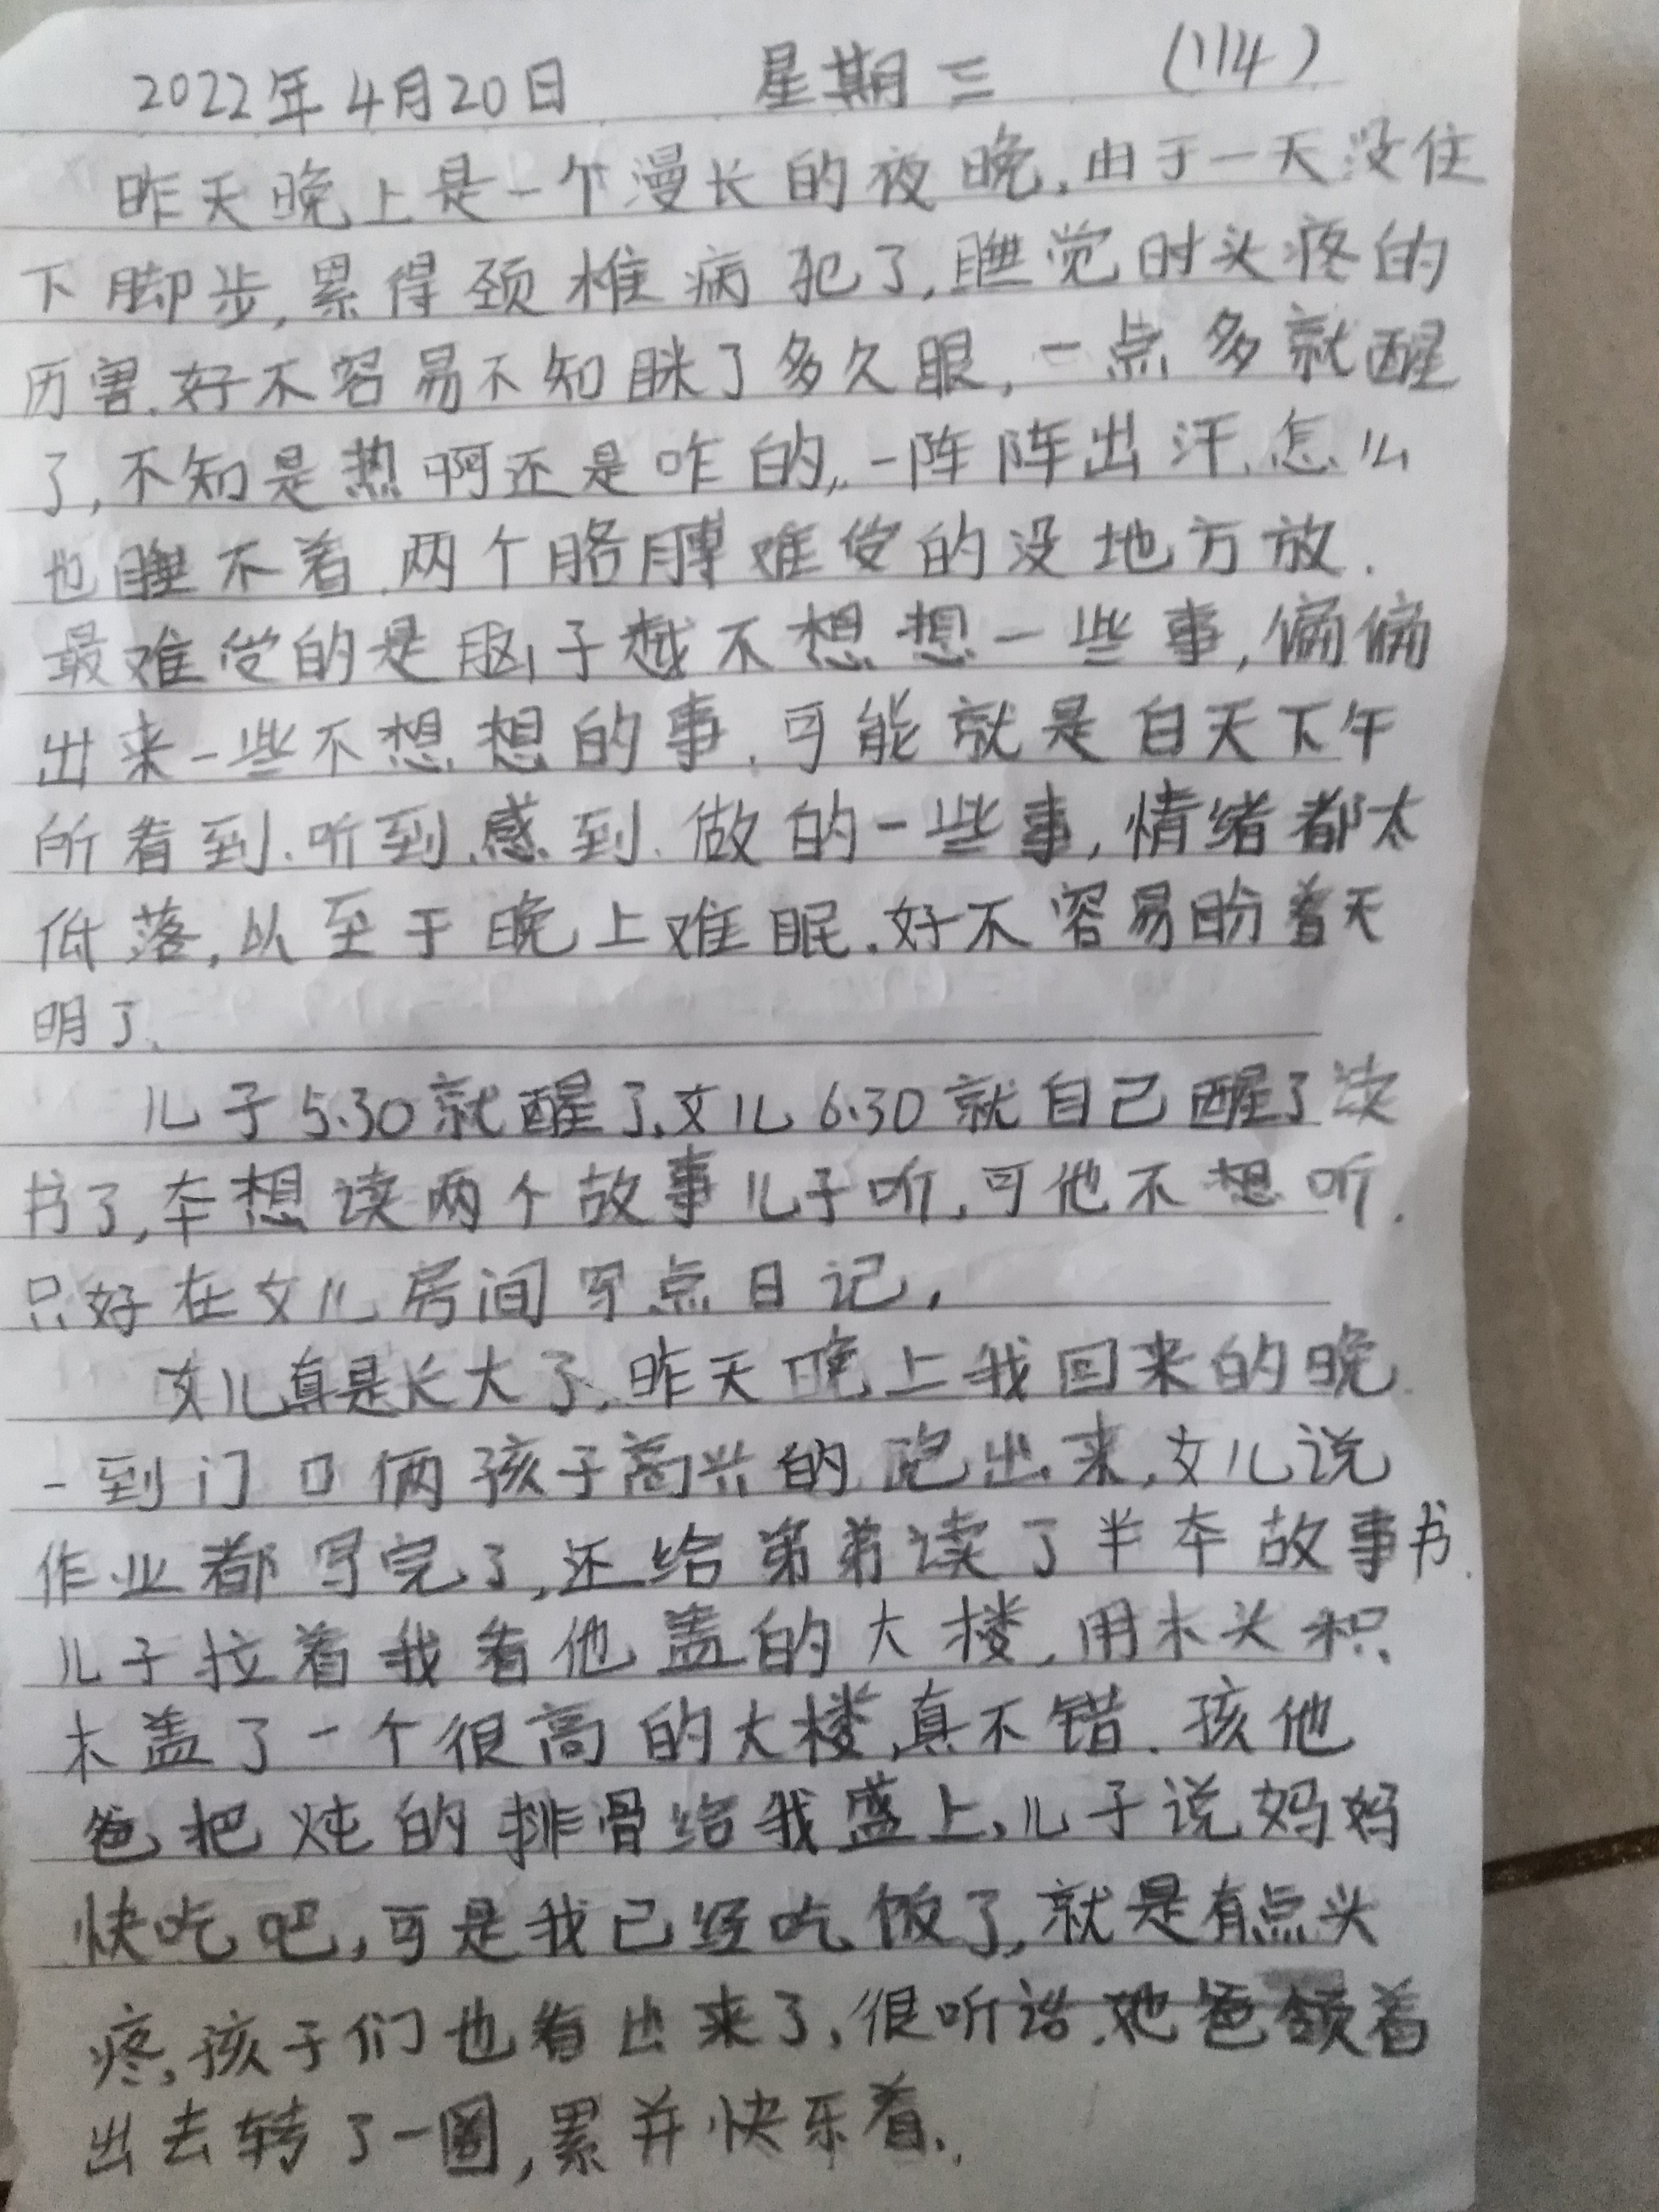 2022年4月20日 星期三 (114)
昨天晚上是一个漫长的夜晚,由于一天没住
下脚步,累得颈椎病犯了,睡觉时头疼的
厉害.好不容易不知眯了多久眼,一点多就醒
了,不知是热啊还是咋的,一阵阵出汗,怎么
也睡不着.两个胳膊难受的没地方放.
最难受的是脑子越不想想一些事,偏偏
出来一些不想想的事.可能就是白天下午
所看到.听到.感到.做的一些事,情绪都太
低落,以至于晚上难眠.好不容易盼着天
明了.
儿子5.30就醒了,女儿6.30就自己醒了读
书了,本想读两个故事儿子听,可他不想听.
只好在女儿房间写点日记,
女儿真是长大了,昨天晚上我回来的晚.
一到门口俩孩子高兴的跑出来,女儿说
作业都写完了,还给弟弟读了半本故事书.
儿子拉着我看他盖的大楼,用木头积
木盖了一个很高的大楼,真不错.孩他
爸把炖的排骨给我盛上,儿子说妈妈
快吃吧,可是我已经吃饭了,就是有点头
疼,孩子们也看出来了,很听话.她爸领着
出去转了一圈,累并快乐着.